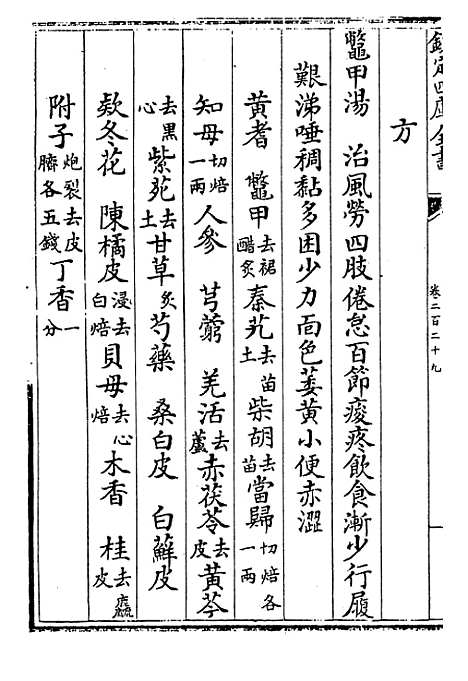 欽定四庫全書
卷二百二十九
方
鼈甲湯　治風勞四肢倦怠百節痠疼飲食漸少行履
艱涕唾稠黏多困少力面色萎黃小便赤澀
黃耆　鼈甲去裙醋炙　秦艽去苗土　柴胡去苗　當歸切焙各一兩
知母切焙一兩　人參　芎藭　羌活去蘆　赤茯苓去皮　黃芩
去黑心　紫菀去土　甘草炙　芍藥　桑白皮　白蘚皮
欵冬花　陳橘皮浸去白焙　貝母去心焙　木香　桂去麤皮
附子炮裂去皮臍各五錢　丁香一分